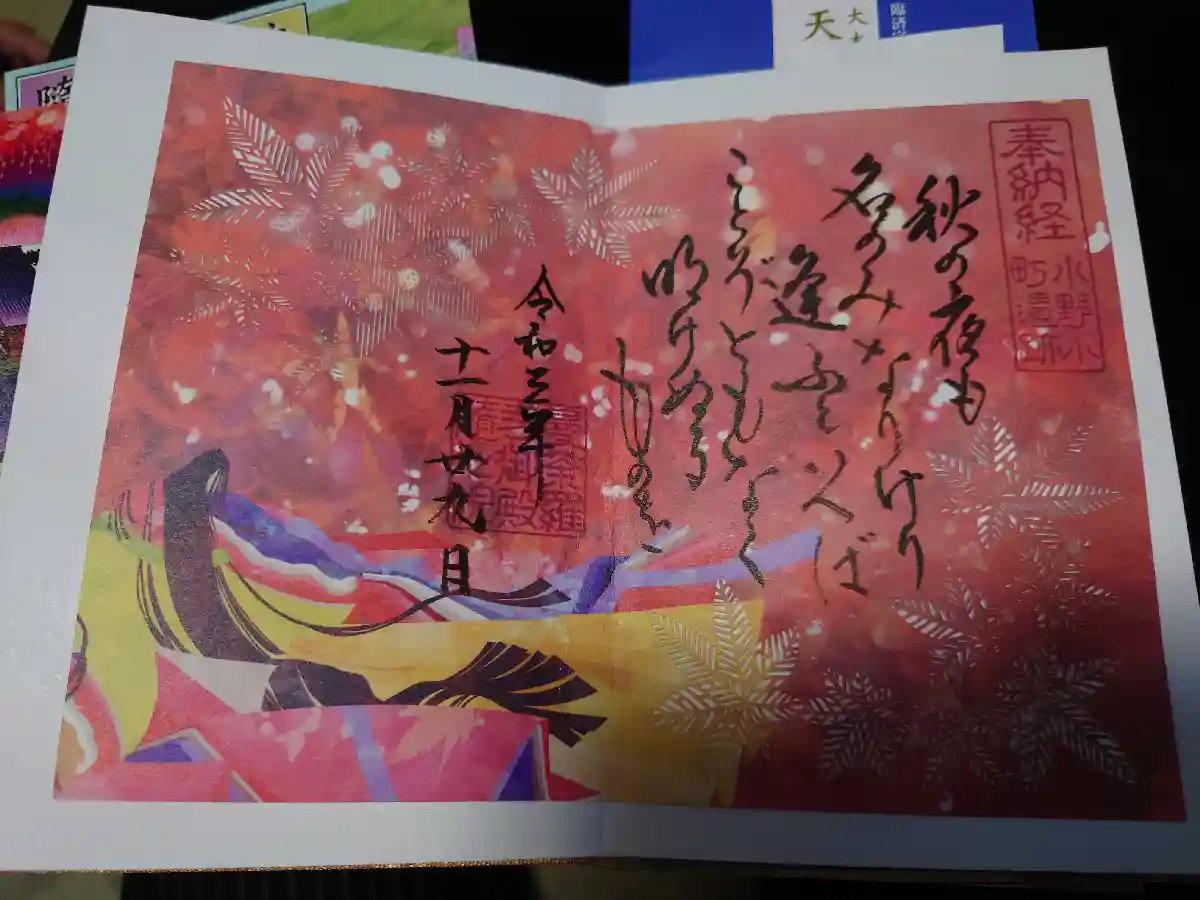 奉納経
小野小
町遺跡
秋の夜も
名のみなりけり
逢ふといへば
ことぞともなく
明けぬる
ものを
令和三年
十一月廿九日
曼荼羅
御殿
大本
天
臨済
随